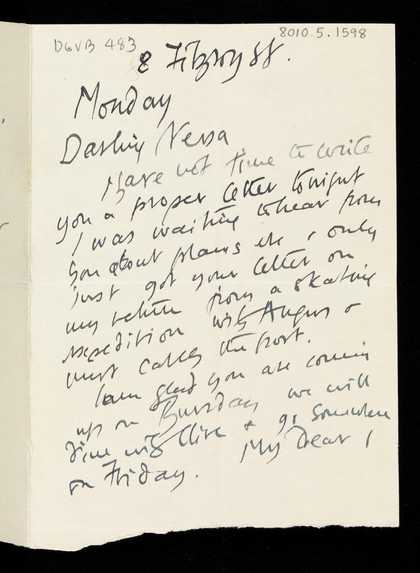 DGVB 483
8010.5.1598
8 Fitzroy St.
Monday
Darling Nessa
Have not time to write
you a proper letter tonight
I was waiting to hear from
you about plans etc & only
just got your letter on
my return from a skating
expedition with Angus &
must catch the post.
I am glad you are coming
up on Thursday we will
dine with Clive & go somewhere
on Friday. My Dear I